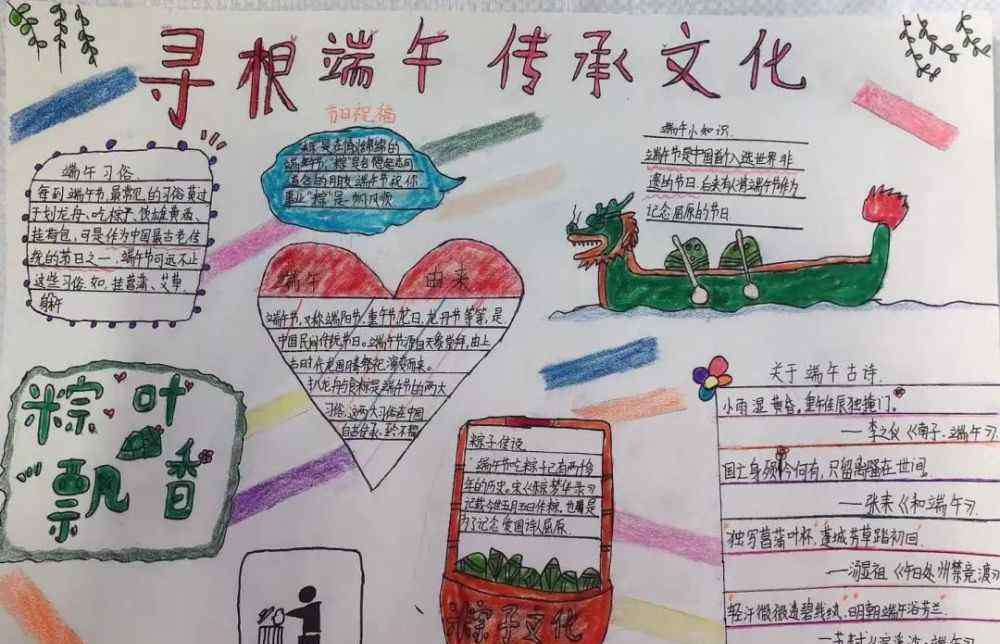 寻根端午 传承文化
节日祝福
"粽"是在情浓绵绵的
端午节,"粽"是会想起志同
道合的朋友,端午节,祝你
事业"粽"是一帆风顺
端午小知识
端午节是中国首个入选世界非
遗的节日,后来有人将端午节作为
记念屈原的节日
端午习俗
每到端午节,最常见的习俗莫过
于划龙舟、吃粽子、饮雄黄酒、
挂香包,可是作为中国最古老传
统的节日之一,端午节可远不止
这些习俗.如:挂菖蒲、艾草、
躲午
端午 由来
端午节,又称端阳节,重午节,龙日,龙舟节等等,是
中国民间传统节日。端午节源自天象崇拜,由上
古时代龙图腾祭祀演变而来。
扒龙舟与食粽是端午节的两大
习俗,这两大习俗在中国
自古传承,至今不辍
粽·叶
飘香
粽子传说
端午节吃粽子已有两千多
年的历史。
记载今世五月五日作粽,也是
为了记念爱国诗人屈原
粽子文化
关于端午古诗
小雨湿黄昏。重午佳辰独掩门。
——李之仪《南乡子.端午》
国亡身殒今何有,只留离骚在世间。
——张耒《和端午》
独写菖蒲竹叶杯,蓬城芳草踏初回
——汤显祖《午日处州禁竞渡》
轻汗微微透碧纨,明朝端午浴芳兰
——苏轼《浣溪沙·端午》